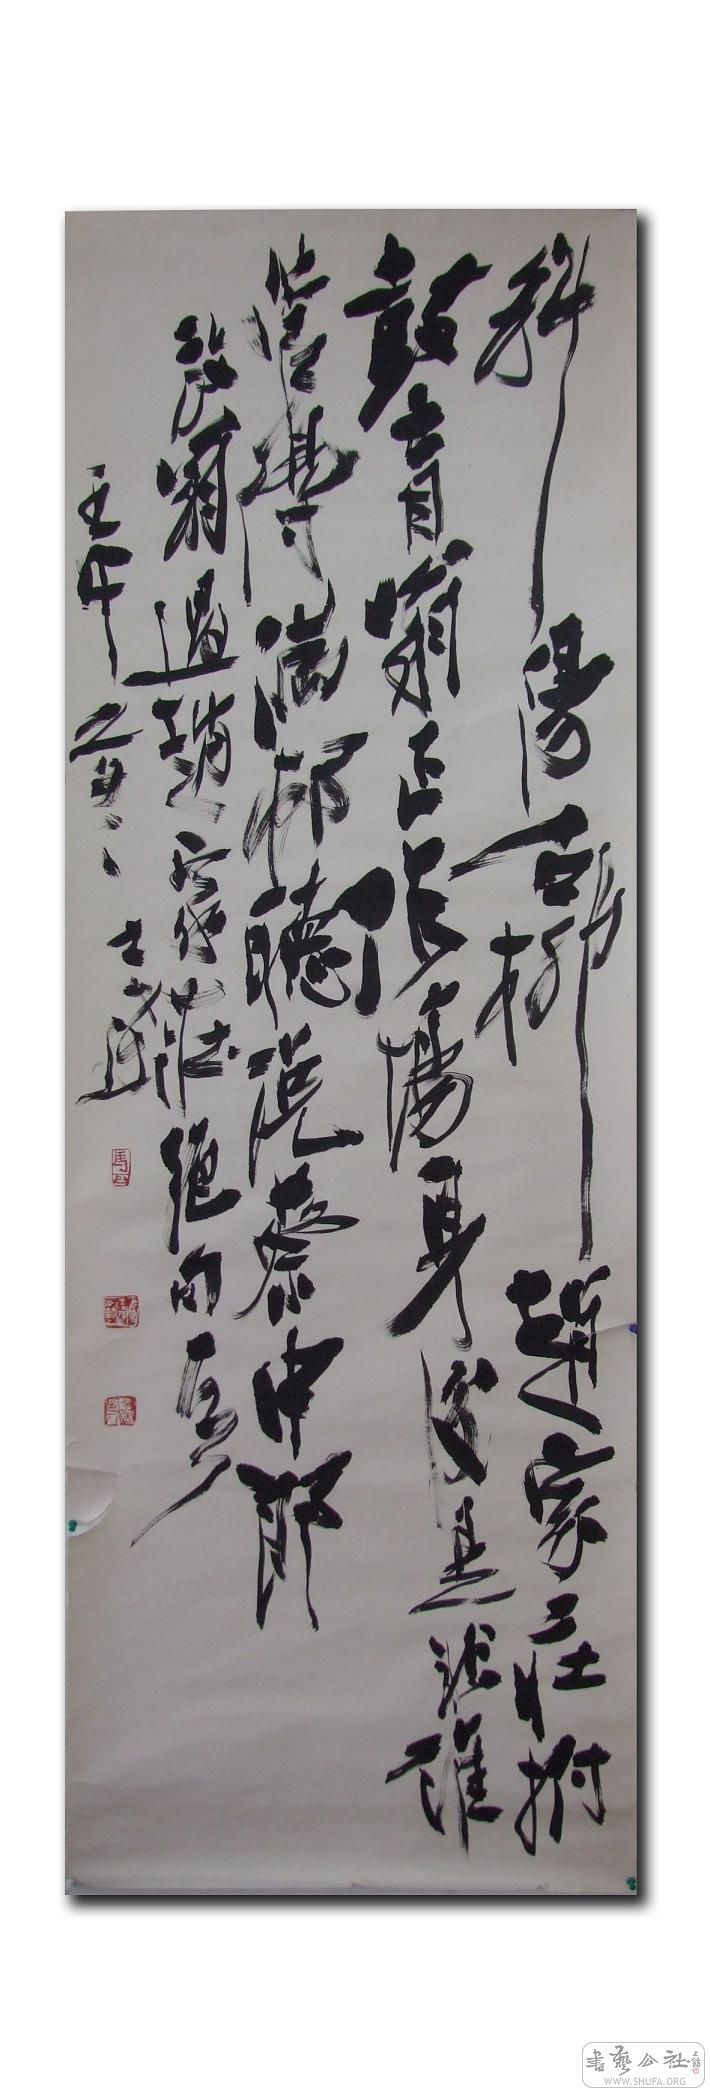 斜陽古柳趙家莊拊
鼓盲翁正作場身後是非誰
管得滿村聽說蔡中郎
放翁過趙家莊絕句
壬午
書藝公社
WWW.SHUFA.ORG